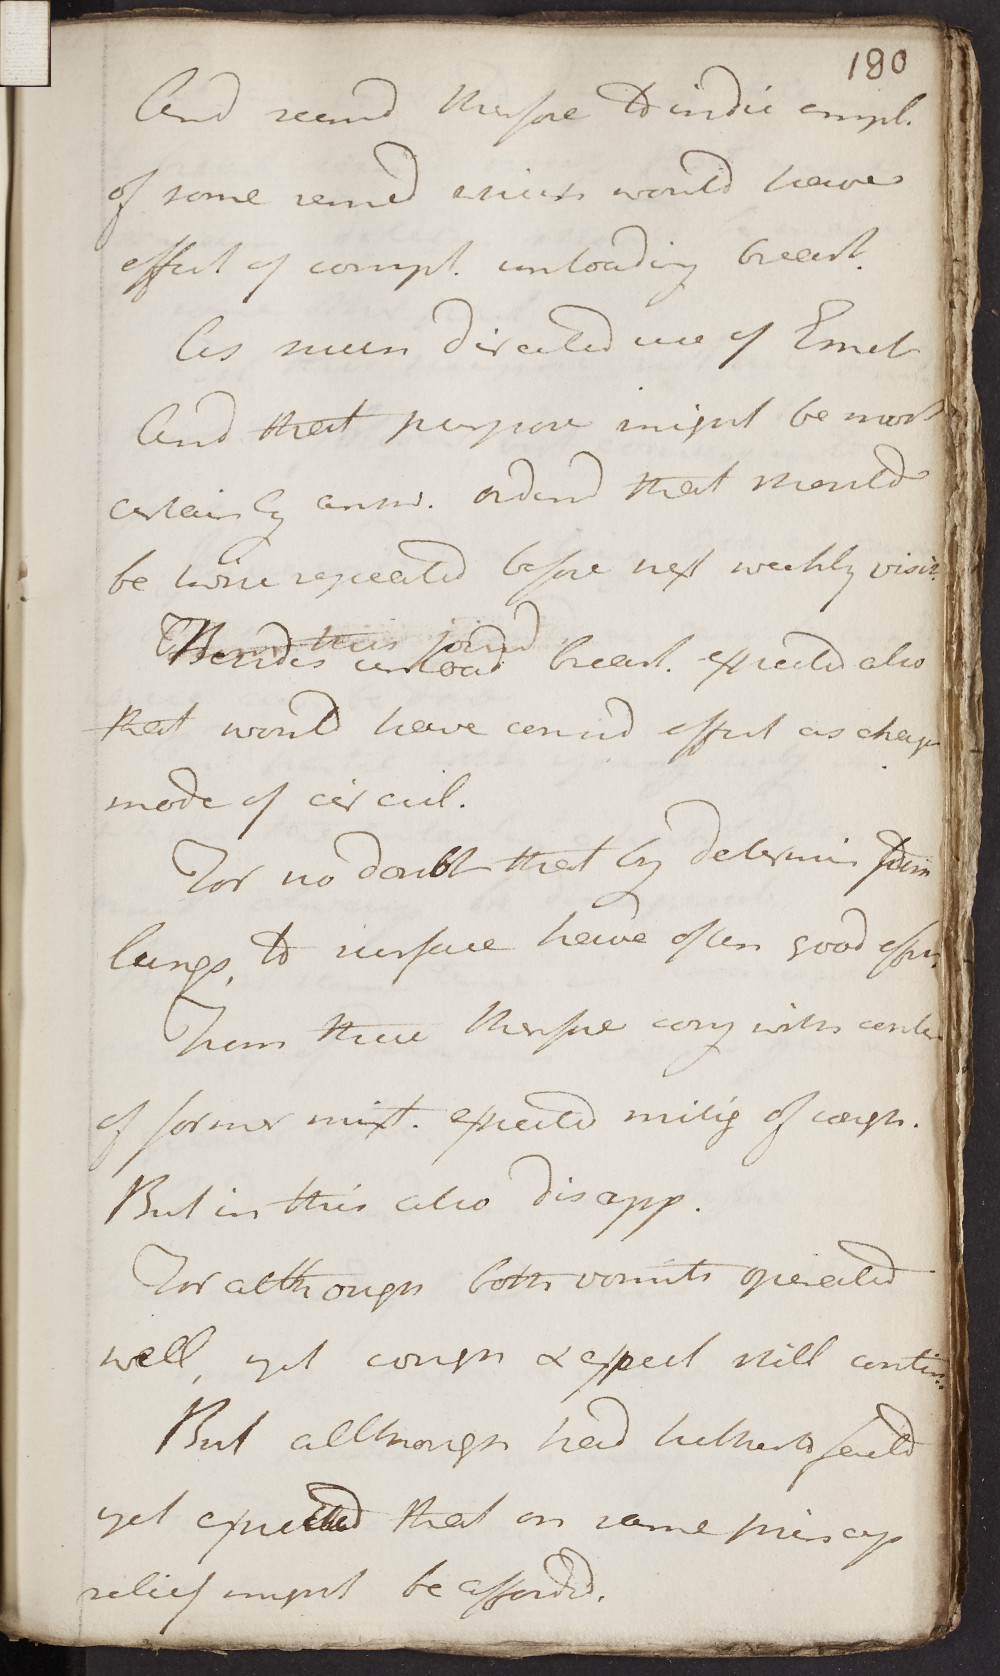 180
And seemd therfore to indic empl.
of some remed which would have
effect of compl. unloading breast.
As such directed use of Emet
And that purpose might be most
certainly answ. orderd that should
be twice repeated before next weekly visit.
From this joind
Besides unload breast. expected also
that would have considd effect as chang
mode of circul.
For no doubt that by determin from
lungs, to surface have often good effect.
From these therfore conj with contin
of former mixt. expected mitig of cough.
But in this also disapp.
For although both vomits operated
well, yet cough & expect still contin.
But although had hitherto faild
yet expected that on same princip
relief might be afforded.